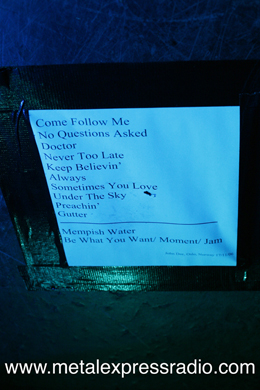 Come Follow Me
No Questions Asked
Doctor
Never Too Late
Keep Believin'
Always
Sometimes You Love
Under The Sky
Preachin'
Gutter
Mempish Water
Be What You Want/ Moment/ Jam
www.metalexpressradio.com